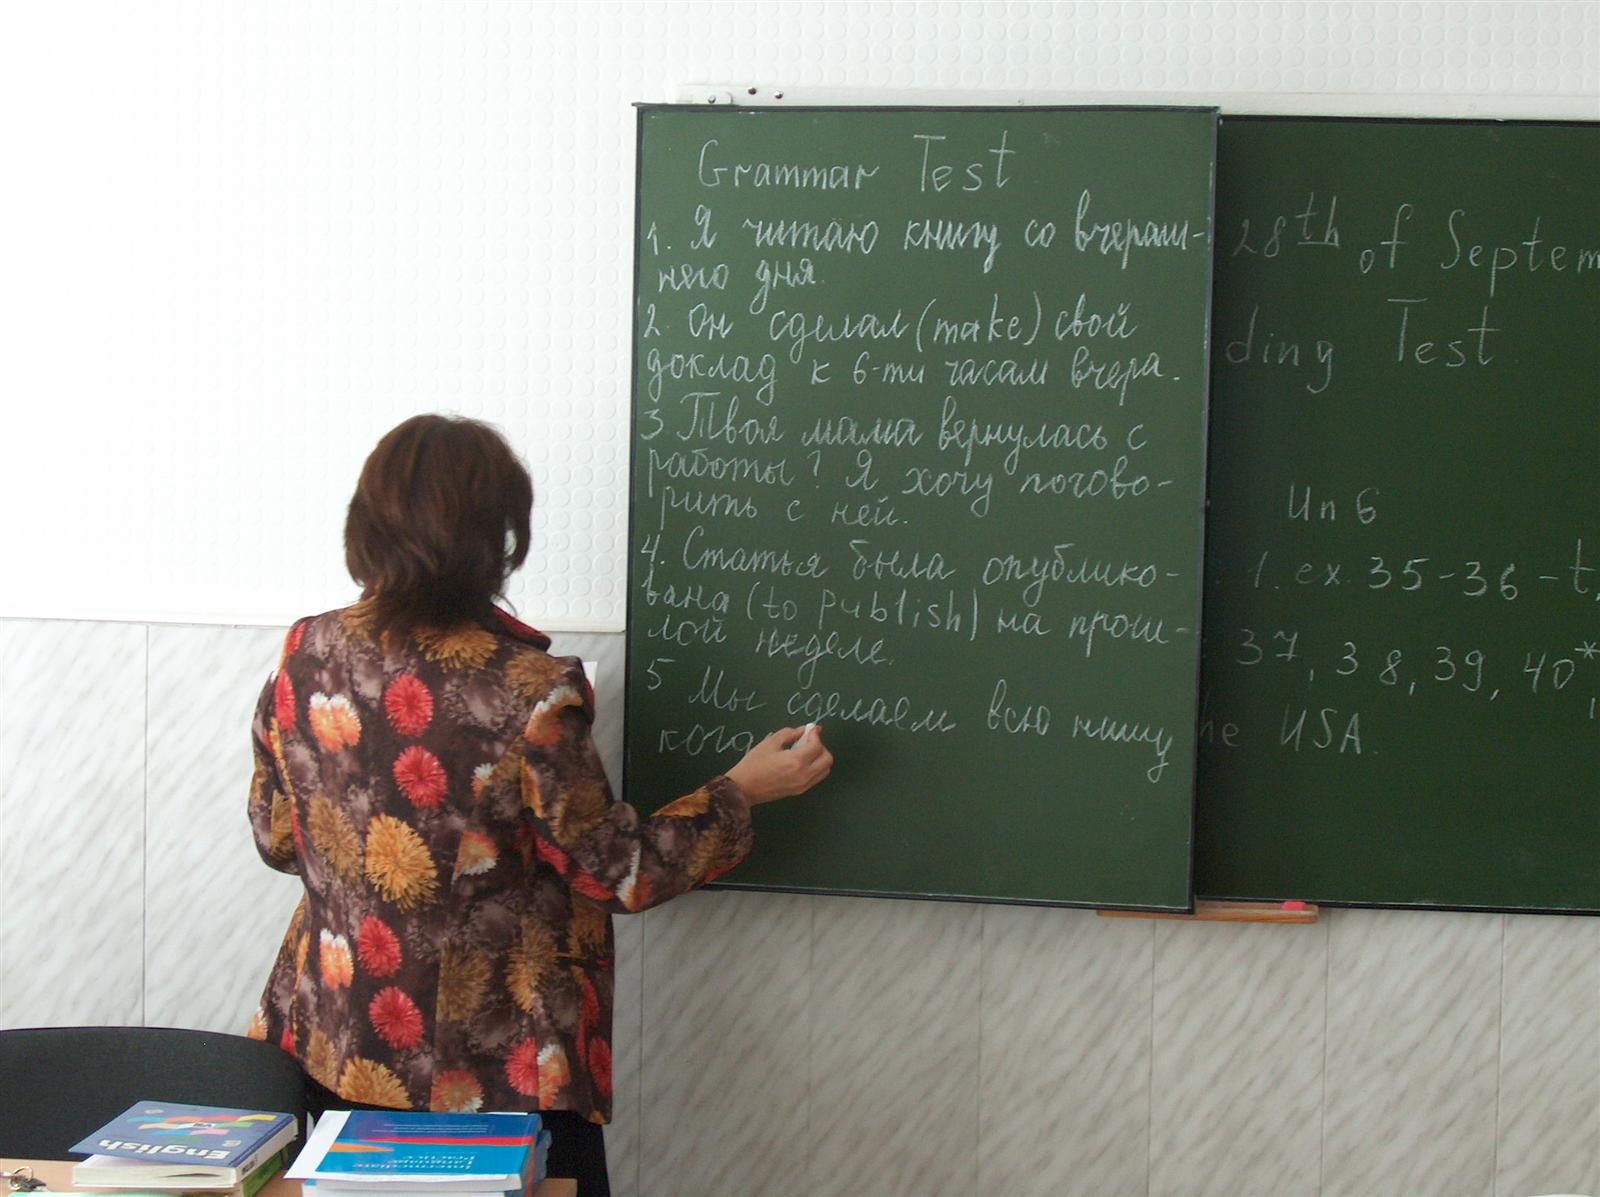 Grammar Test
1. Я читаю книгу со вчераш-
него дня.
2. Он сделал (make) свой
доклад к 6-ти часам вчера.
3 Твоя мама вернулась с
работы? Я хочу погово-
рить с ней.
4. Статья была опублико-
вана (to publish) на прош-
лой неделе.
5 Мы сделаем всю
ког
28th of Septem
ding Test
Un 6
1. ex. 35-36 - t,
37, 38, 39, 40*,
he USA.
English
Intermediate
Language
Practice